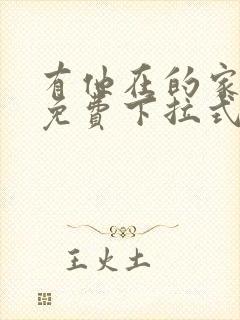 有他在的家
免費下拉式
王火土